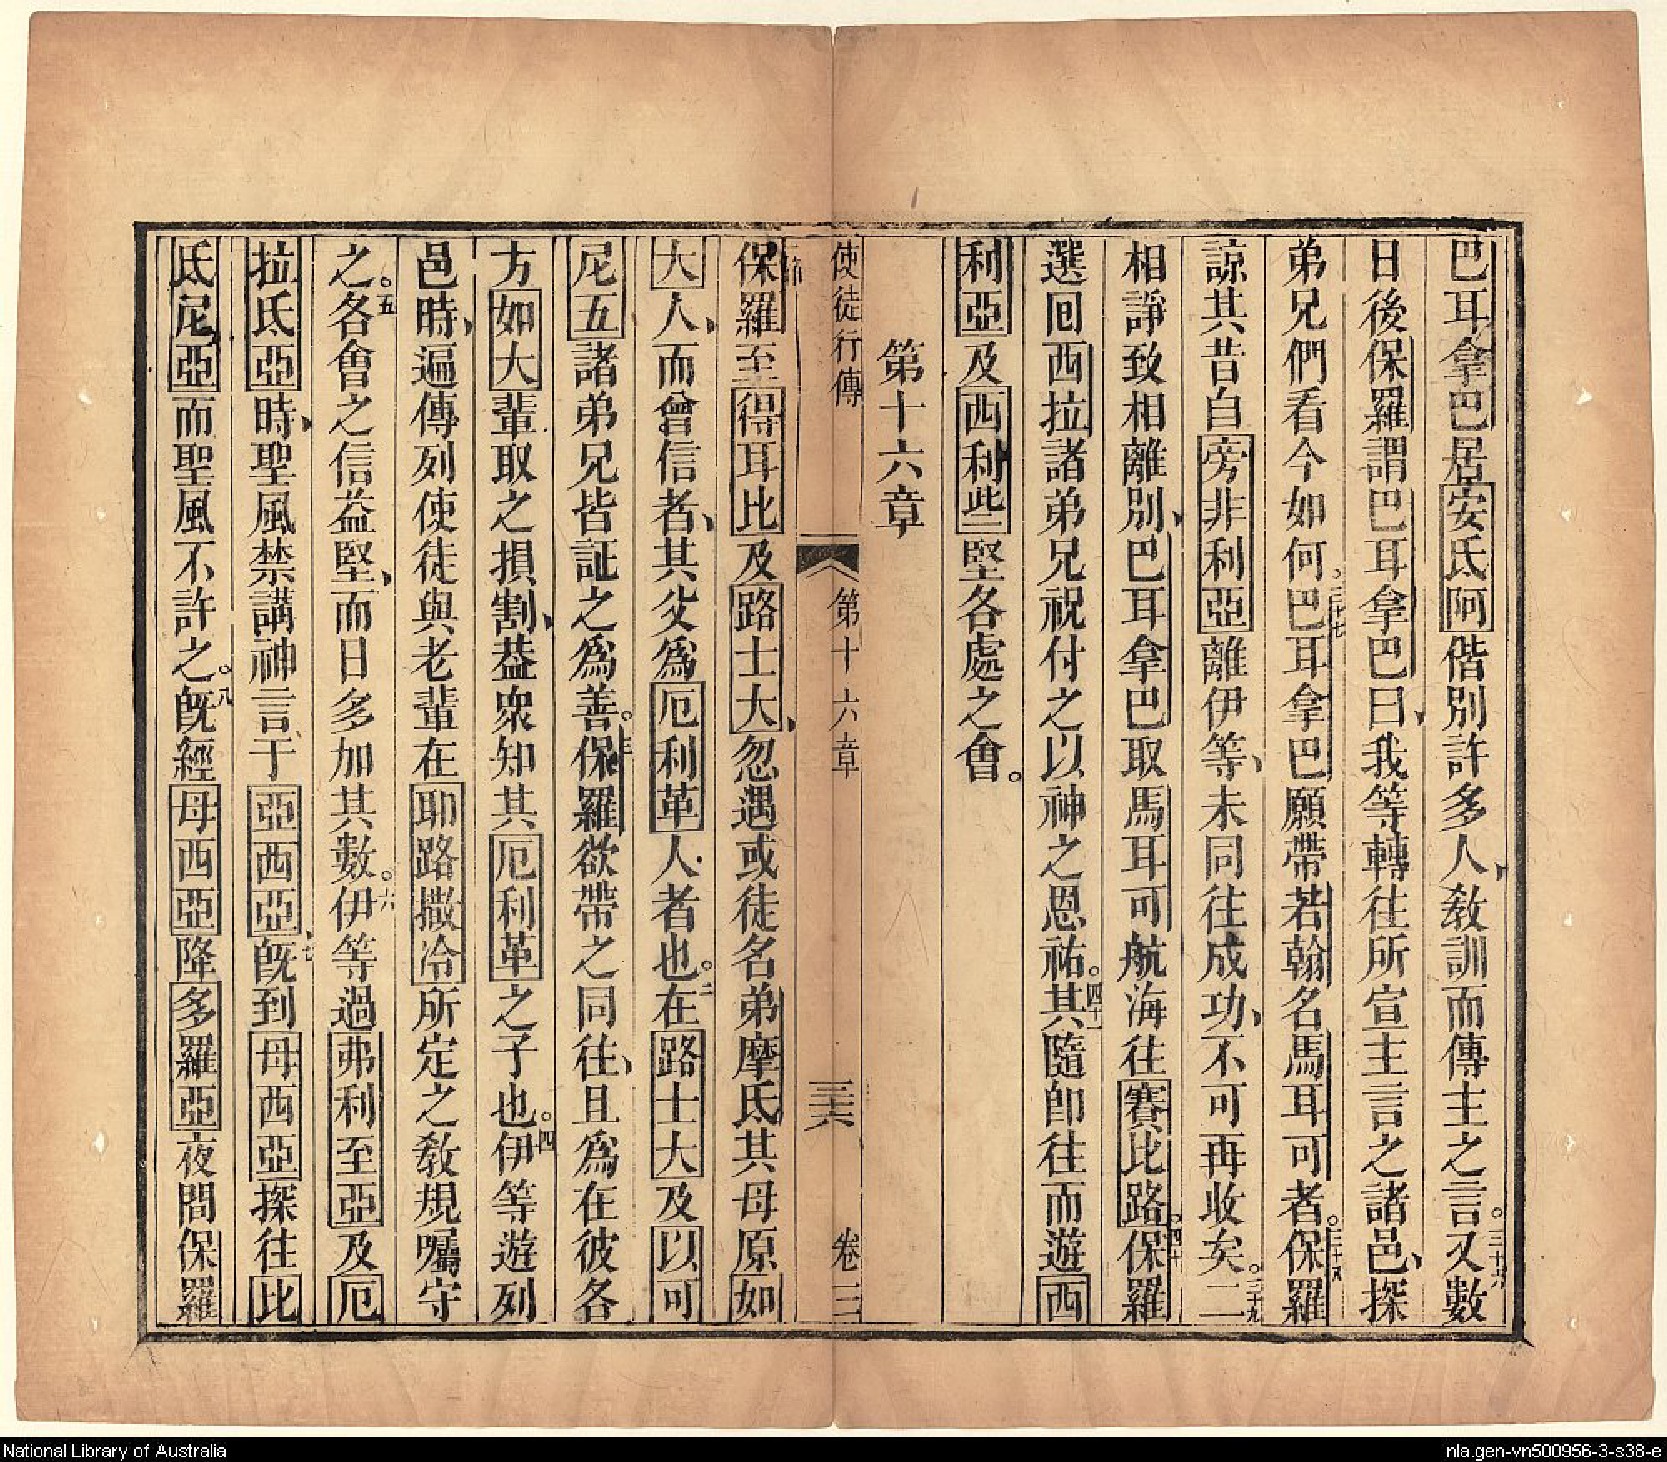 巴耳拿巴居安氐阿偕別許多人教訓而傳主之言。三十六又數
日後保羅謂巴耳拿巴曰我等轉往所宣主言之諸邑、探
弟兄們看今如何。三十七巴耳拿巴願帶若翰名馬耳可者。三十八保羅
諒其昔自旁非利亞離伊等、未同往成功、不可再收矣。三十九二
相諍致相離別、巴耳拿巴取馬耳可航海往賽比路。四十保羅
選囘西拉諸弟兄祝付之以神之恩祐。四十一其隨卽往而遊西
利亞及西利些堅各處之會。
第十六章
使徒行傳 第十六章 三十六 卷三
保羅至得耳比及路士大、忽遇或徒名弟摩氐其母原如
大人、而曾信者、其父為厄利革人者也。二在路士大及以可
尼五諸弟兄皆証之為善。三保羅欲帶之同往、且為在彼各
方如大輩取之損割、葢衆知其厄利革之子也。四伊等遊列
邑時、遍傳列使徒與老輩在耶路撒冷所定之教規囑守
之。五各會之信益堅、而日多加其數。六伊等過弗利至亞及厄
拉氐亞時、聖風禁講神言于亞西亞、七旣到母西亞探往比
氐尼亞而聖風不許之。八旣經母西亞降多羅亞夜間保羅
National Library of Australia
nla.gen-vn500956-3-s38-e